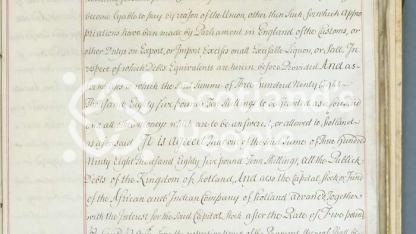 become lyable to pay by reason of the Union, other than such for which Appro
priations have been made by Parliament in England of the Customs, or
other Dutys on Export, or Import Excises on all Exciseable Liquors, or Salt, In
respect of which Debts Equivalents are herein before Provided And as
to the which the said Summe of Three hundred Ninty Eight
Thousand Eighty five pounds Ten Shillings to be granted as aforesaid
and all other moneys which are to be answered, or allowed to Scotland
as aforesaid It is Agreed That out of the said Summe of Three hundred
Ninty Eight Thousand Eighty five pounds Tenn Shillings, all the Publick
Debts of the Kingdom of Scotland, And also the Capital Stock or Fund
of the African and Indian Company of Scotland advanced together
with the Interest for the said Capital Stock after the Rate of Five pound